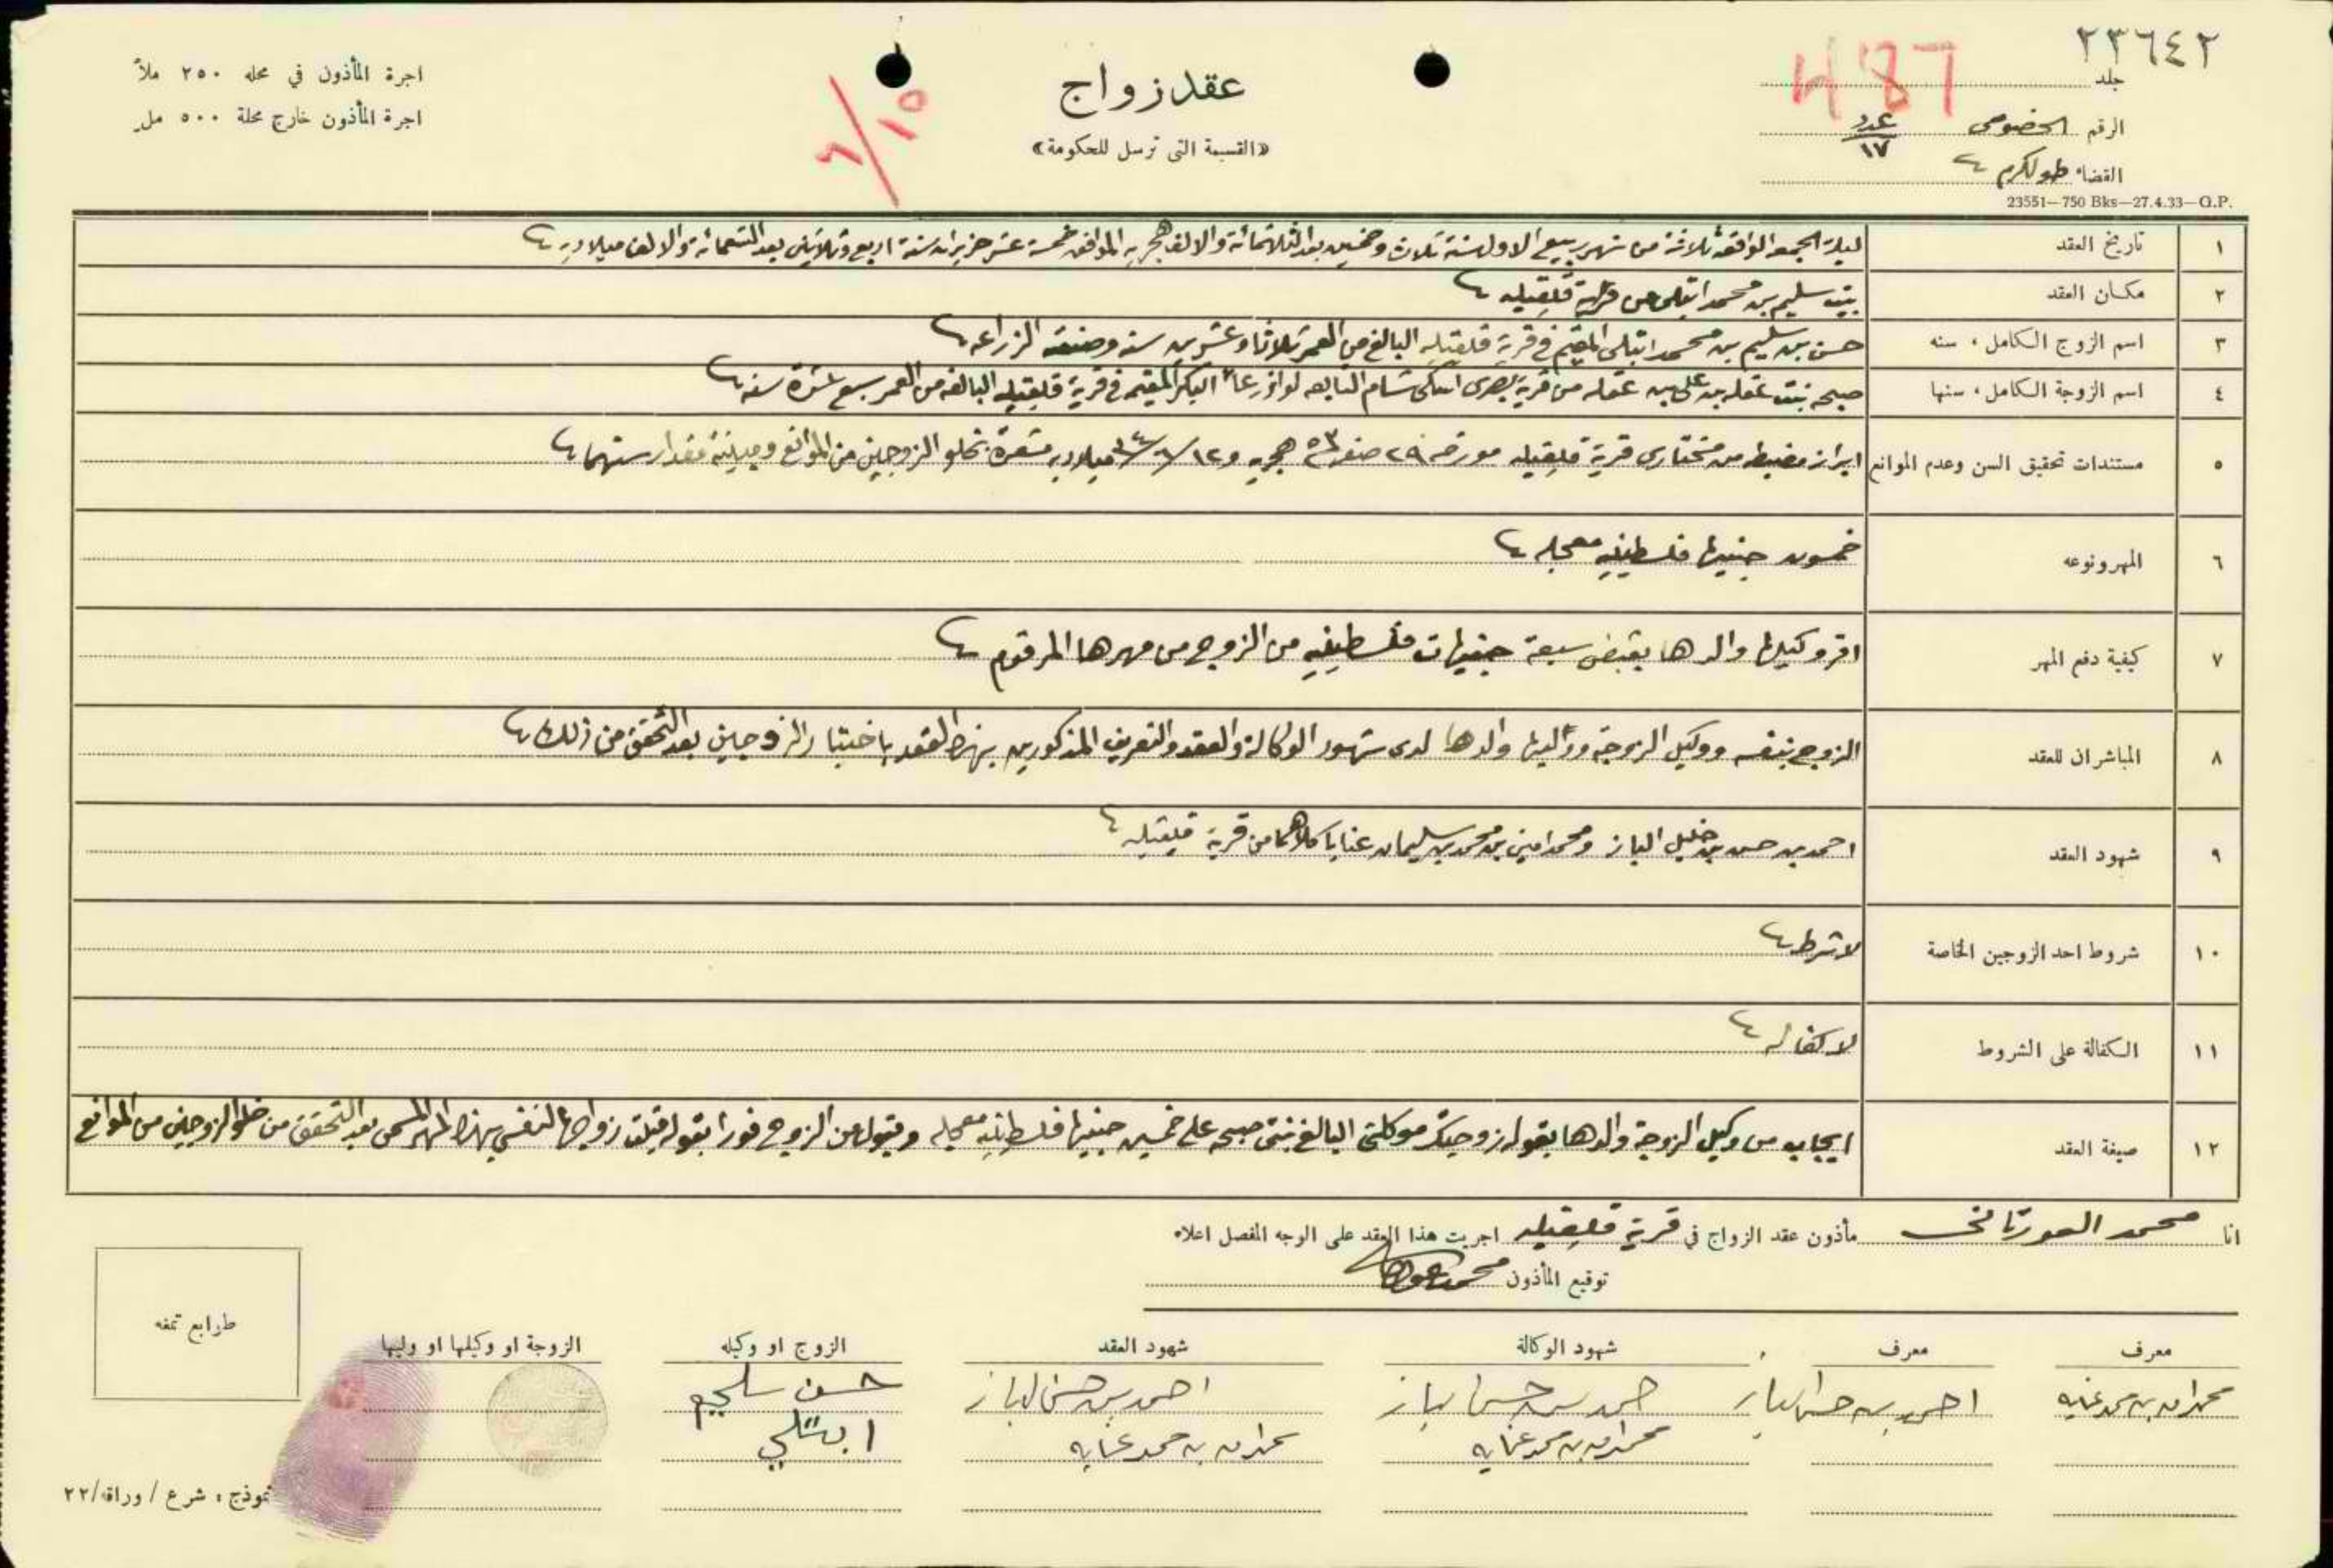 ٢٣٦٤٢
487
جلد
الرقم الخصوصي عدد ١٧
القضاء طولكرم
23551—750 Bks—27.4.33—G.P.
عقد زواج
«القسيمة التى ترسل للحكومة»
٦/١٥
اجرة المأذون في محله ٢٥٠ ملاً
اجرة المأذون خارج محلة ٥٠٠ مل
١ تاريخ العقد ليلة الجمعه الواقعه ثلاثة من شهر ربيع الاول سنة ثلاث وخمسين بعد الثلاثمائة والالف هجريه الموافق خمسة عشر حزيران سنة اربع وثلاثين بعد التسعمائة والالف ميلاديه
٢ مكان العقد بيت سليم بن محمد ابتلى من قرية قلقيليه
٣ اسم الزوج الكامل، سنه حسن بن سليم بن محمد ابتلى المقيم في قرية قلقيليه البالغ من العمر ثلاثا وعشرين سنه وصنعته الزراعه
٤ اسم الزوجة الكامل، سنها صبحه بنت عقله بن علي بن عقله من قرية بصرى اسكي شام التابعه لواء درعا البكر المقيمه في قرية قلقيليه البالغه من العمر سبع عشرة سنه
٥ مستندات تحقيق السن وعدم الموانع ابراز مضبطه من مختارى قرية قلقيليه مورخه ٢٩ صفر ٥٣ هجريه و ١٢/٦/٣٤ ميلاديه مشعرة بخلو الزوجين من الموانع ومبينة مقدار سنهما
٦ المهر ونوعه خمسون جنيها فلسطينيه معجله
٧ كيفية دفع المهر اقر وكيلها والدها بقبض سبعة جنيهات فلسطينيه من الزوج من مهرها المرقوم
٨ المباشران للعقد الزوج بنفسه ووكيل الزوجة ووليها والدها لدى شهود الوكالة والعقد والتعريف المذكورين بهذا العقد باختيار الزوجين بعد التحقق من ذلك
٩ شهود العقد احمد بن حسن بن خليل الباز ومحمد امين بن محمد بن سليمان عنايا كلاهما من قرية قلقيليه
١٠ شروط احد الزوجين الخاصة لا شرط
١١ الكفالة على الشروط لا كفاله
١٢ صيغة العقد ايجاب من وكيل الزوجة والدها بقوله زوجتك موكلتى البالغ بنتى صبحه على خمسين جنيها فلسطينيه معجله وقبول من الزوج فورا بقوله قبلت زواجها لنفسي بهذا المهر المسمى بعد التحقق من خلو الزوجين من الموانع
انا محمد مأذون عقد الزواج في قرية قلقيليه اجريت هذا العقد على الوجه المفصل اعلاه
توقيع المأذون محمد
معرف معرف شهود الوكالة شهود العقد الزوج او وكيله الزوجة او وكيلها او وليها
محمد امين بن محمد عنايه احمد بن حسن الباز احمد بن حسن الباز احمد بن حسن الباز حسن سليم
محمد امين بن محمد عنايه محمد امين بن محمد عنايه ابتلي
طوابع تمغه
نموذج: شرع / وراقه/٢٢